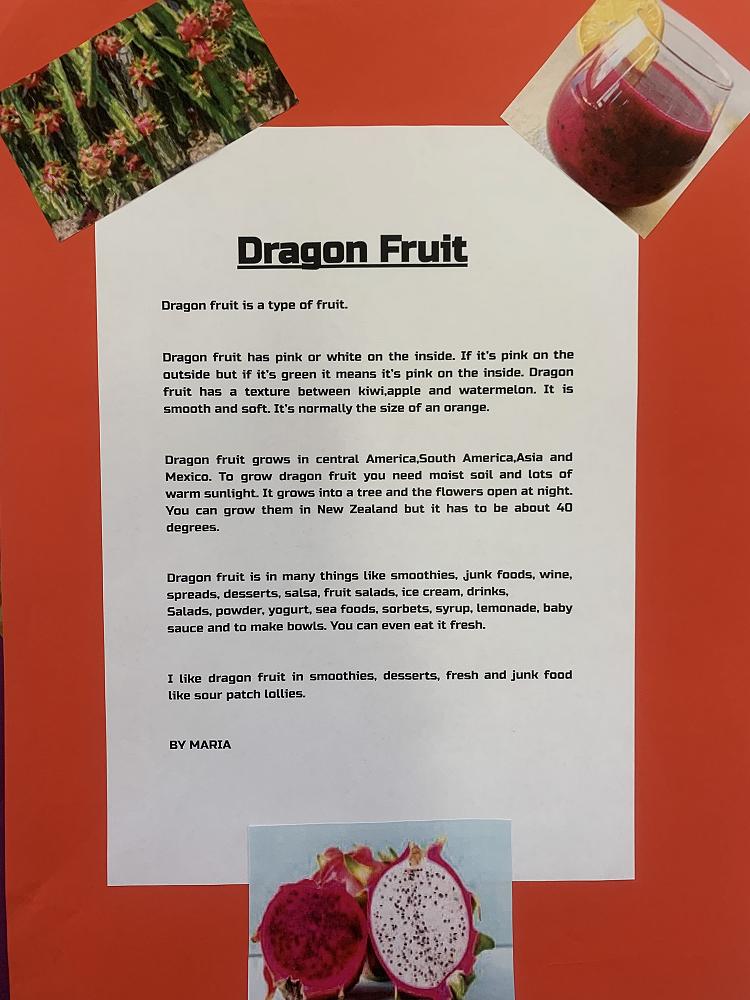 Dragon Fruit
Dragon fruit is a type of fruit.
Dragon fruit has pink or white on the inside. If it's pink on the
outside but if it's green it means it's pink on the inside. Dragon
fruit has a texture between kiwi,apple and watermelon. It is
smooth and soft. It's normally the size of an orange.
Dragon fruit grows in central America,South America,Asia and
Mexico. To grow dragon fruit you need moist soil and lots of
warm sunlight. It grows into a tree and the flowers open at night.
You can grow them in New Zealand but it has to be about 40
degrees.
Dragon fruit is in many things like smoothies, junk foods, wine,
spreads, desserts, salsa, fruit salads, ice cream, drinks,
Salads, powder, yogurt, sea foods, sorbets, syrup, lemonade, baby
sauce and to make bowls. You can even eat it fresh.
I like dragon fruit in smoothies, desserts, fresh and junk food
like sour patch lollies.
BY MARIA